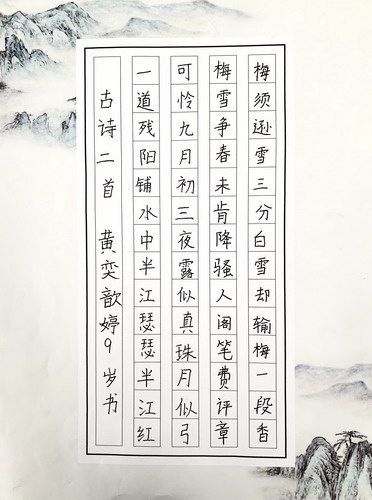 古诗二首 黄奕歆婷9岁书
一道残阳铺水中半江瑟瑟半江红
可怜九月初三夜露似真珠月似弓
梅雪争春未肯降骚人阁笔费评章
梅须逊雪三分白雪却输梅一段香